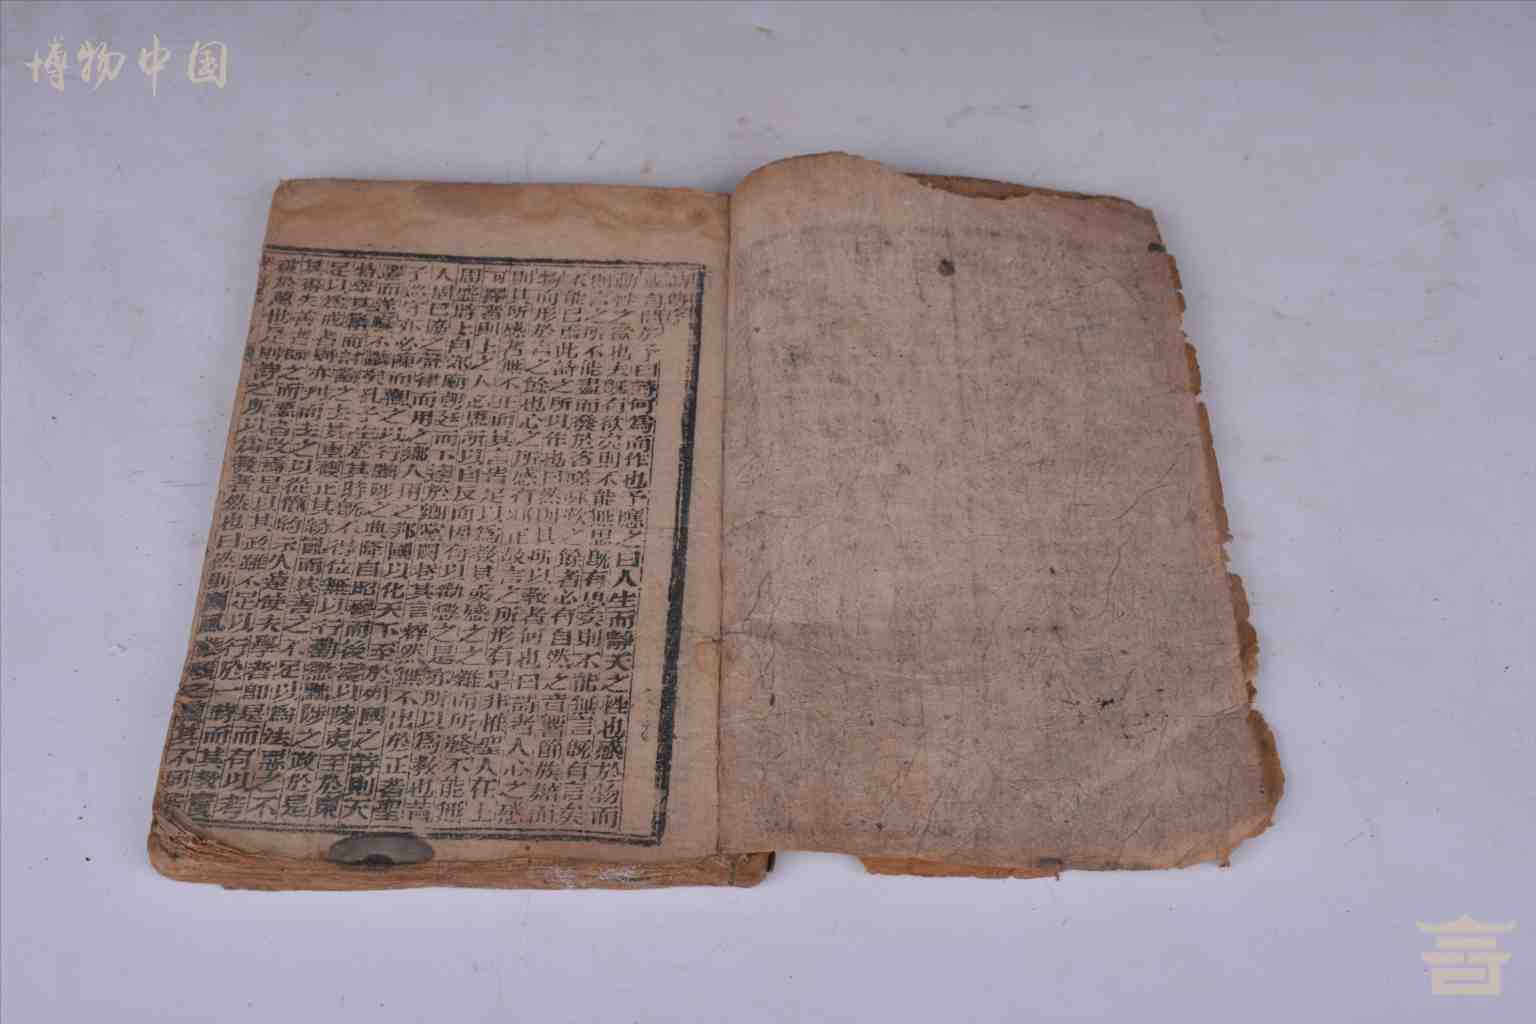 博物中国
詩傳序
或有問於予曰詩何爲而作也予應之曰人生而靜天之性也感於物而
動性之欲也夫既有欲矣則不能無思既有思矣則不能無言既有言矣
則言之所不能盡而發於咨嗟咏歎之餘者必有自然之音響節族而
不能已焉此詩之所以作也曰然則其所以教者何也曰詩者人心之感
物而形於言之餘也心之所感有邪正故言之所形有是非惟聖人在上
則其所感者無不正而其言皆足以爲教其或感之之雜而所發不能無
可擇者則上之人必思所以自反而因有以勸懲之是亦所以爲教也昔
周盛時上自郊廟朝廷而下達於鄉黨閭巷其言粹然無不出於正者聖
人固已協之聲律而用之鄉人用之邦國以化天下至於列國之詩則天
子巡守亦必陳而觀之以行黜陟之典降自昭穆而後寖以陵夷至於東
遷而遂廢不講矣孔子生於其時既不得位無以行勸懲黜陟之政於是
特舉其籍而討論之去其重複正其紛亂而其善之不足以爲法惡之不
足以爲戒者則亦刊而去之以從簡約示久遠使夫學者即是而有以考
其得失善者師之而惡者改焉是以其政雖不足以行於一時而其教實
被於萬世是則詩之所以爲教者然也曰然則國風雅頌之體其不同